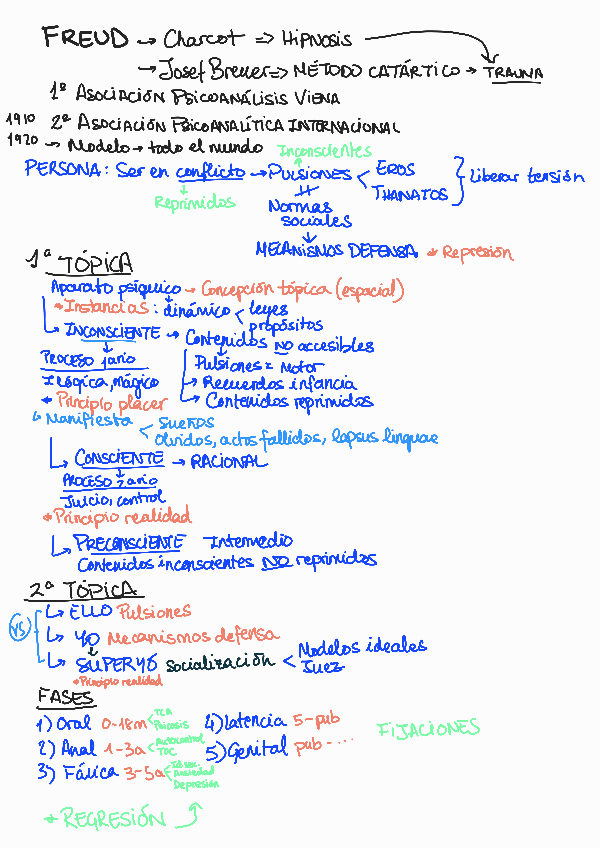 FREUD → Charcot ⇒ HIPNOSIS
→ Josef Breuer ⇒ MÉTODO CATÁRTICO → TRAUMA
1ª ASOCIACIÓN PSICOANÁLISIS VIENA
1910 2ª ASOCIACIÓN PSICOANALÍTICA INTERNACIONAL
1920 → Modelo → todo el mundo
Inconscientes
PERSONA: Ser en conflicto → PULSIONES < EROS
THANATOS
Liberar tensión
Reprimidos
Normas
sociales
MECANISMOS DEFENSA → Represión
1ª TÓPICA
Aparato psíquico → Concepción tópica (espacial)
→ Instancias: dinámico < leyes
propósitos
↳ INCONSCIENTE → Contenidos NO accesibles
PROCESO 1ario
Pulsiones = Motor
Ilógica, mágico
→ Recuerdos infancia
→ Principio placer
→ Contenidos reprimidos
↳ Manifiesta < Sueños
Olvidos, actos fallidos, lapsus linguae
↳ CONSCIENTE → RACIONAL
PROCESO 2ario
Juicio, control
→ Principio realidad
↳ PRECONSCIENTE Intermedio
Contenidos inconscientes NO reprimidos
2ª TÓPICA
↳ ELLO Pulsiones
VS
↳ YO Mecanismos defensa
↳ SUPERYÓ Socialización < Modelos ideales
Juez
→ Principio realidad
FASES
1) Oral 0-18m < TCA
Psicosis
2) Anal 1-3a < Autocontrol
TOC
3) Fálica 3-5a
Ansiedad
Depresión
4) Latencia 5-pub
5) Genital pub - ....
FIJACIONES
→ REGRESIÓN